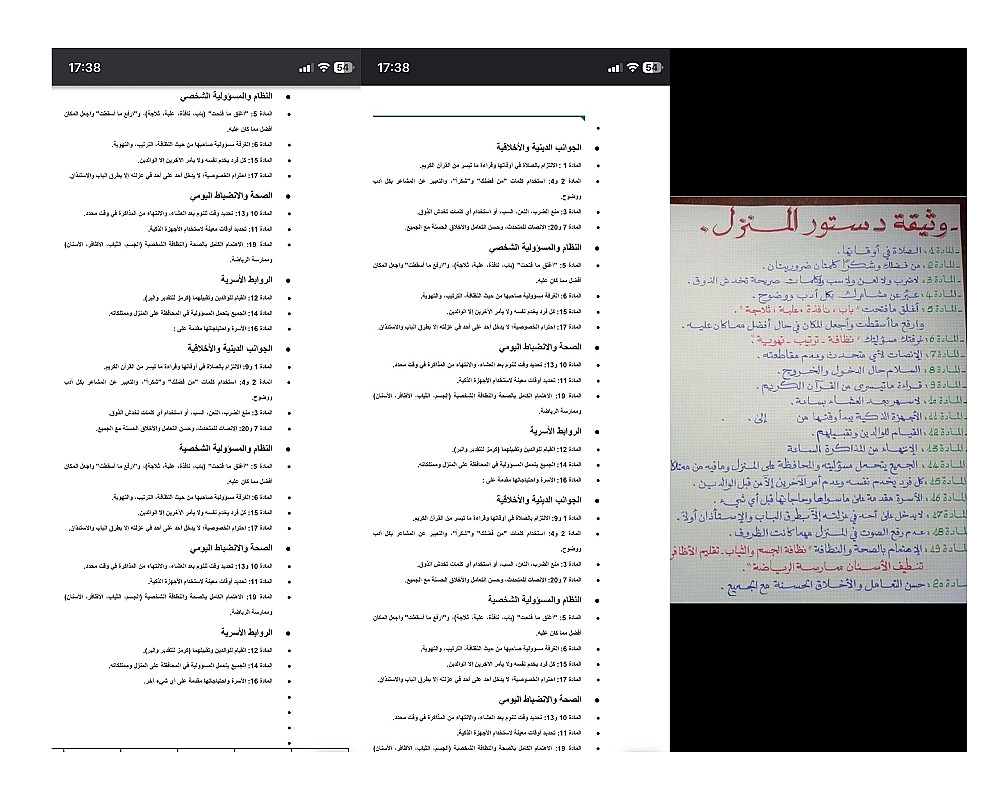 ـ وثيقة دستور المنزل.
ـ المادة 1: الصلاة في أوقاتها.
ـ المادة 2: من فضلك وشكرًا كلمتان ضروريتان.
ـ المادة 3: لاضرب ولا لعن ولاسب ولاكلمات صريحة تخدش الذوق.
ـ المادة 4: عبّر عن مشاعرك بكل أدب ووضوح.
ـ المادة 5: أغلق مافتحت "باب، نافذة، علبة، ثلاجة"
وارفع ماأسقطت واجعل المكان في حال أفضل مماكان عليه.
ـ المادة 6: غرفتك مسؤليتك "نظافة ـ ترتيب ـ تهوية".
ـ المادة 7: الإنصات لأي متحدث وعدم مقاطعته.
ـ المادة 8: السلام حال الدخول والخروج.
ـ المادة 9: قراءة ماتيسر من القرآن الكريم.
ـ المادة 10: لاسهر بعد العشاء بساعة.
ـ المادة 11: الأجهزة الذكية يبدأ وقتها من إلى .
ـ المادة 12: القيام للوالدين وتقبيلهم.
ـ المادة 13: الإنتهاء من المذاكرة الساعة
المادة 14: الجميع يتحمل مسؤليته والمحافظة على المنزل ومافيه من ممتلكا
المادة 15: كل فرد يخدم نفسه وعدم أمر الآخرين إلاّ من قبل الوالدين.
المادة 16: الأسرة مقدمة على ماسواها وحاجاتها قبل أي شيء.
المادة 17: لايدخل على أحد في عزلته إلاّ بطرق الباب والإستأذان أولاً.
المادة 18: عدم رفع الصوت في المنزل مهما كانت الظروف.
المادة 19: الإهتمام بالصحة والنظافة "نظافة الجسم والثياب ـ تقليم الأظافر
تنظيف الأسنان ممارسة الرياضة".
ـادة 20: حسن التعامل والأخلاق الحسنة مع الجميع.
17:38
54
الجوانب الدينية والأخلاقية
المادة 1 : الالتزام بالصلاة في أوقاتها وقراءة ما تيسر من القرآن الكريم.
المادة 2 و4: استخدام كلمات "من فضلك" و"شكراً"، والتعبير عن المشاعر بكل أدب
ووضوح.
المادة 3: منع الضرب، اللعن، السب، أو استخدام أي كلمات تخدش الذوق.
المادة 7 و20: الإنصات للمتحدث، وحسن التعامل والأخلاق الحسنة مع الجميع.
النظام والمسؤولية الشخصي
المادة 5: "اغلق ما فتحت" (باب، نافذة، علبة، ثلاجة)، و"ارفع ما أسقطت" واجعل المكان
أفضل مما كان عليه.
المادة 6: الغرفة مسؤولية صاحبها من حيث النظافة، الترتيب، والتهوية.
المادة 15: كل فرد يخدم نفسه ولا يأمر الآخرين إلا الوالدين.
المادة 17: احترام الخصوصية؛ لا يدخل أحد على أحد في عزلته إلا بطرق الباب والاستئذان.
الصحة والانضباط اليومي
المادة 10 و13: تحديد وقت للنوم بعد العشاء، والانتهاء من المذاكرة في وقت محدد.
المادة 11: تحديد أوقات معينة لاستخدام الأجهزة الذكية.
المادة 19: الاهتمام الكامل بالصحة والنظافة الشخصية (الجسم، الثياب، الأظافر، الأسنان)
وممارسة الرياضة.
الروابط الأسرية
المادة 12: القيام للوالدين وتقبيلهما (كرمز للتقدير والبر).
المادة 14: الجميع يتحمل المسؤولية في المحافظة على المنزل وممتلكاته.
المادة 16: الأسرة واحتياجاتها مقدمة على :
الجوانب الدينية والأخلاقية
المادة 1 و9: الالتزام بالصلاة في أوقاتها وقراءة ما تيسر من القرآن الكريم.
المادة 2 و4: استخدام كلمات "من فضلك" و"شكراً"، والتعبير عن المشاعر بكل أدب
ووضوح.
المادة 3: منع الضرب، اللعن، السب، أو استخدام أي كلمات تخدش الذوق.
المادة 7 و20: الإنصات للمتحدث، وحسن التعامل والأخلاق الحسنة مع الجميع.
النظام والمسؤولية الشخصية
المادة 5: "اغلق ما فتحت" (باب، نافذة، علبة، ثلاجة)، و"ارفع ما أسقطت" واجعل المكان
أفضل مما كان عليه.
المادة 6: الغرفة مسؤولية صاحبها من حيث النظافة، الترتيب، والتهوية.
المادة 15: كل فرد يخدم نفسه ولا يأمر الآخرين إلا الوالدين.
المادة 17: احترام الخصوصية؛ لا يدخل أحد على أحد في عزلته إلا بطرق الباب والاستئذان.
الصحة والانضباط اليومي
المادة 10 و13: تحديد وقت للنوم بعد العشاء، والانتهاء من المذاكرة في وقت محدد.
المادة 11: تحديد أوقات معينة لاستخدام الأجهزة الذكية.
المادة 19: الاهتمام الكامل بالصحة والنظافة الشخصية (الجسم، الثياب، الأظافر، الأسنان)
17:38
54
النظام والمسؤولية الشخصي
المادة 5: "اغلق ما فتحت" (باب، نافذة، علبة، ثلاجة)، و"ارفع ما أسقطت" واجعل المكان
أفضل مما كان عليه.
المادة 6: الغرفة مسؤولية صاحبها من حيث النظافة، الترتيب، والتهوية.
المادة 15: كل فرد يخدم نفسه ولا يأمر الآخرين إلا الوالدين.
المادة 17: احترام الخصوصية؛ لا يدخل أحد على أحد في عزلته إلا بطرق الباب والاستئذان.
الصحة والانضباط اليومي
المادة 10 و13: تحديد وقت للنوم بعد العشاء، والانتهاء من المذاكرة في وقت محدد.
المادة 11: تحديد أوقات معينة لاستخدام الأجهزة الذكية.
المادة 19: الاهتمام الكامل بالصحة والنظافة الشخصية (الجسم، الثياب، الأظافر، الأسنان)
وممارسة الرياضة.
الروابط الأسرية
المادة 12: القيام للوالدين وتقبيلهما (كرمز للتقدير والبر).
المادة 14: الجميع يتحمل المسؤولية في المحافظة على المنزل وممتلكاته.
المادة 16: الأسرة واحتياجاتها مقدمة على :
الجوانب الدينية والأخلاقية
المادة 1 و9: الالتزام بالصلاة في أوقاتها وقراءة ما تيسر من القرآن الكريم.
المادة 2 و4: استخدام كلمات "من فضلك" و"شكراً"، والتعبير عن المشاعر بكل أدب
ووضوح.
المادة 3: منع الضرب، اللعن، السب، أو استخدام أي كلمات تخدش الذوق.
المادة 7 و20: الإنصات للمتحدث، وحسن التعامل والأخلاق الحسنة مع الجميع.
النظام والمسؤولية الشخصية
المادة 5: "اغلق ما فتحت" (باب، نافذة، علبة، ثلاجة)، و"ارفع ما أسقطت" واجعل المكان
أفضل مما كان عليه.
المادة 6: الغرفة مسؤولية صاحبها من حيث النظافة، الترتيب، والتهوية.
المادة 15: كل فرد يخدم نفسه ولا يأمر الآخرين إلا الوالدين.
المادة 17: احترام الخصوصية؛ لا يدخل أحد على أحد في عزلته إلا بطرق الباب والاستئذان.
الصحة والانضباط اليومي
المادة 10 و13: تحديد وقت للنوم بعد العشاء، والانتهاء من المذاكرة في وقت محدد.
المادة 11: تحديد أوقات معينة لاستخدام الأجهزة الذكية.
المادة 19: الاهتمام الكامل بالصحة والنظافة الشخصية (الجسم، الثياب، الأظافر، الأسنان)
وممارسة الرياضة.
الروابط الأسرية
المادة 12: القيام للوالدين وتقبيلهما (كرمز للتقدير والبر).
المادة 14: الجميع يتحمل المسؤولية في المحافظة على المنزل وممتلكاته.
المادة 16: الأسرة واحتياجاتها مقدمة على أي شيء آخر.